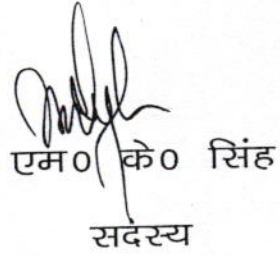 एम० के० सिंह
सदस्य